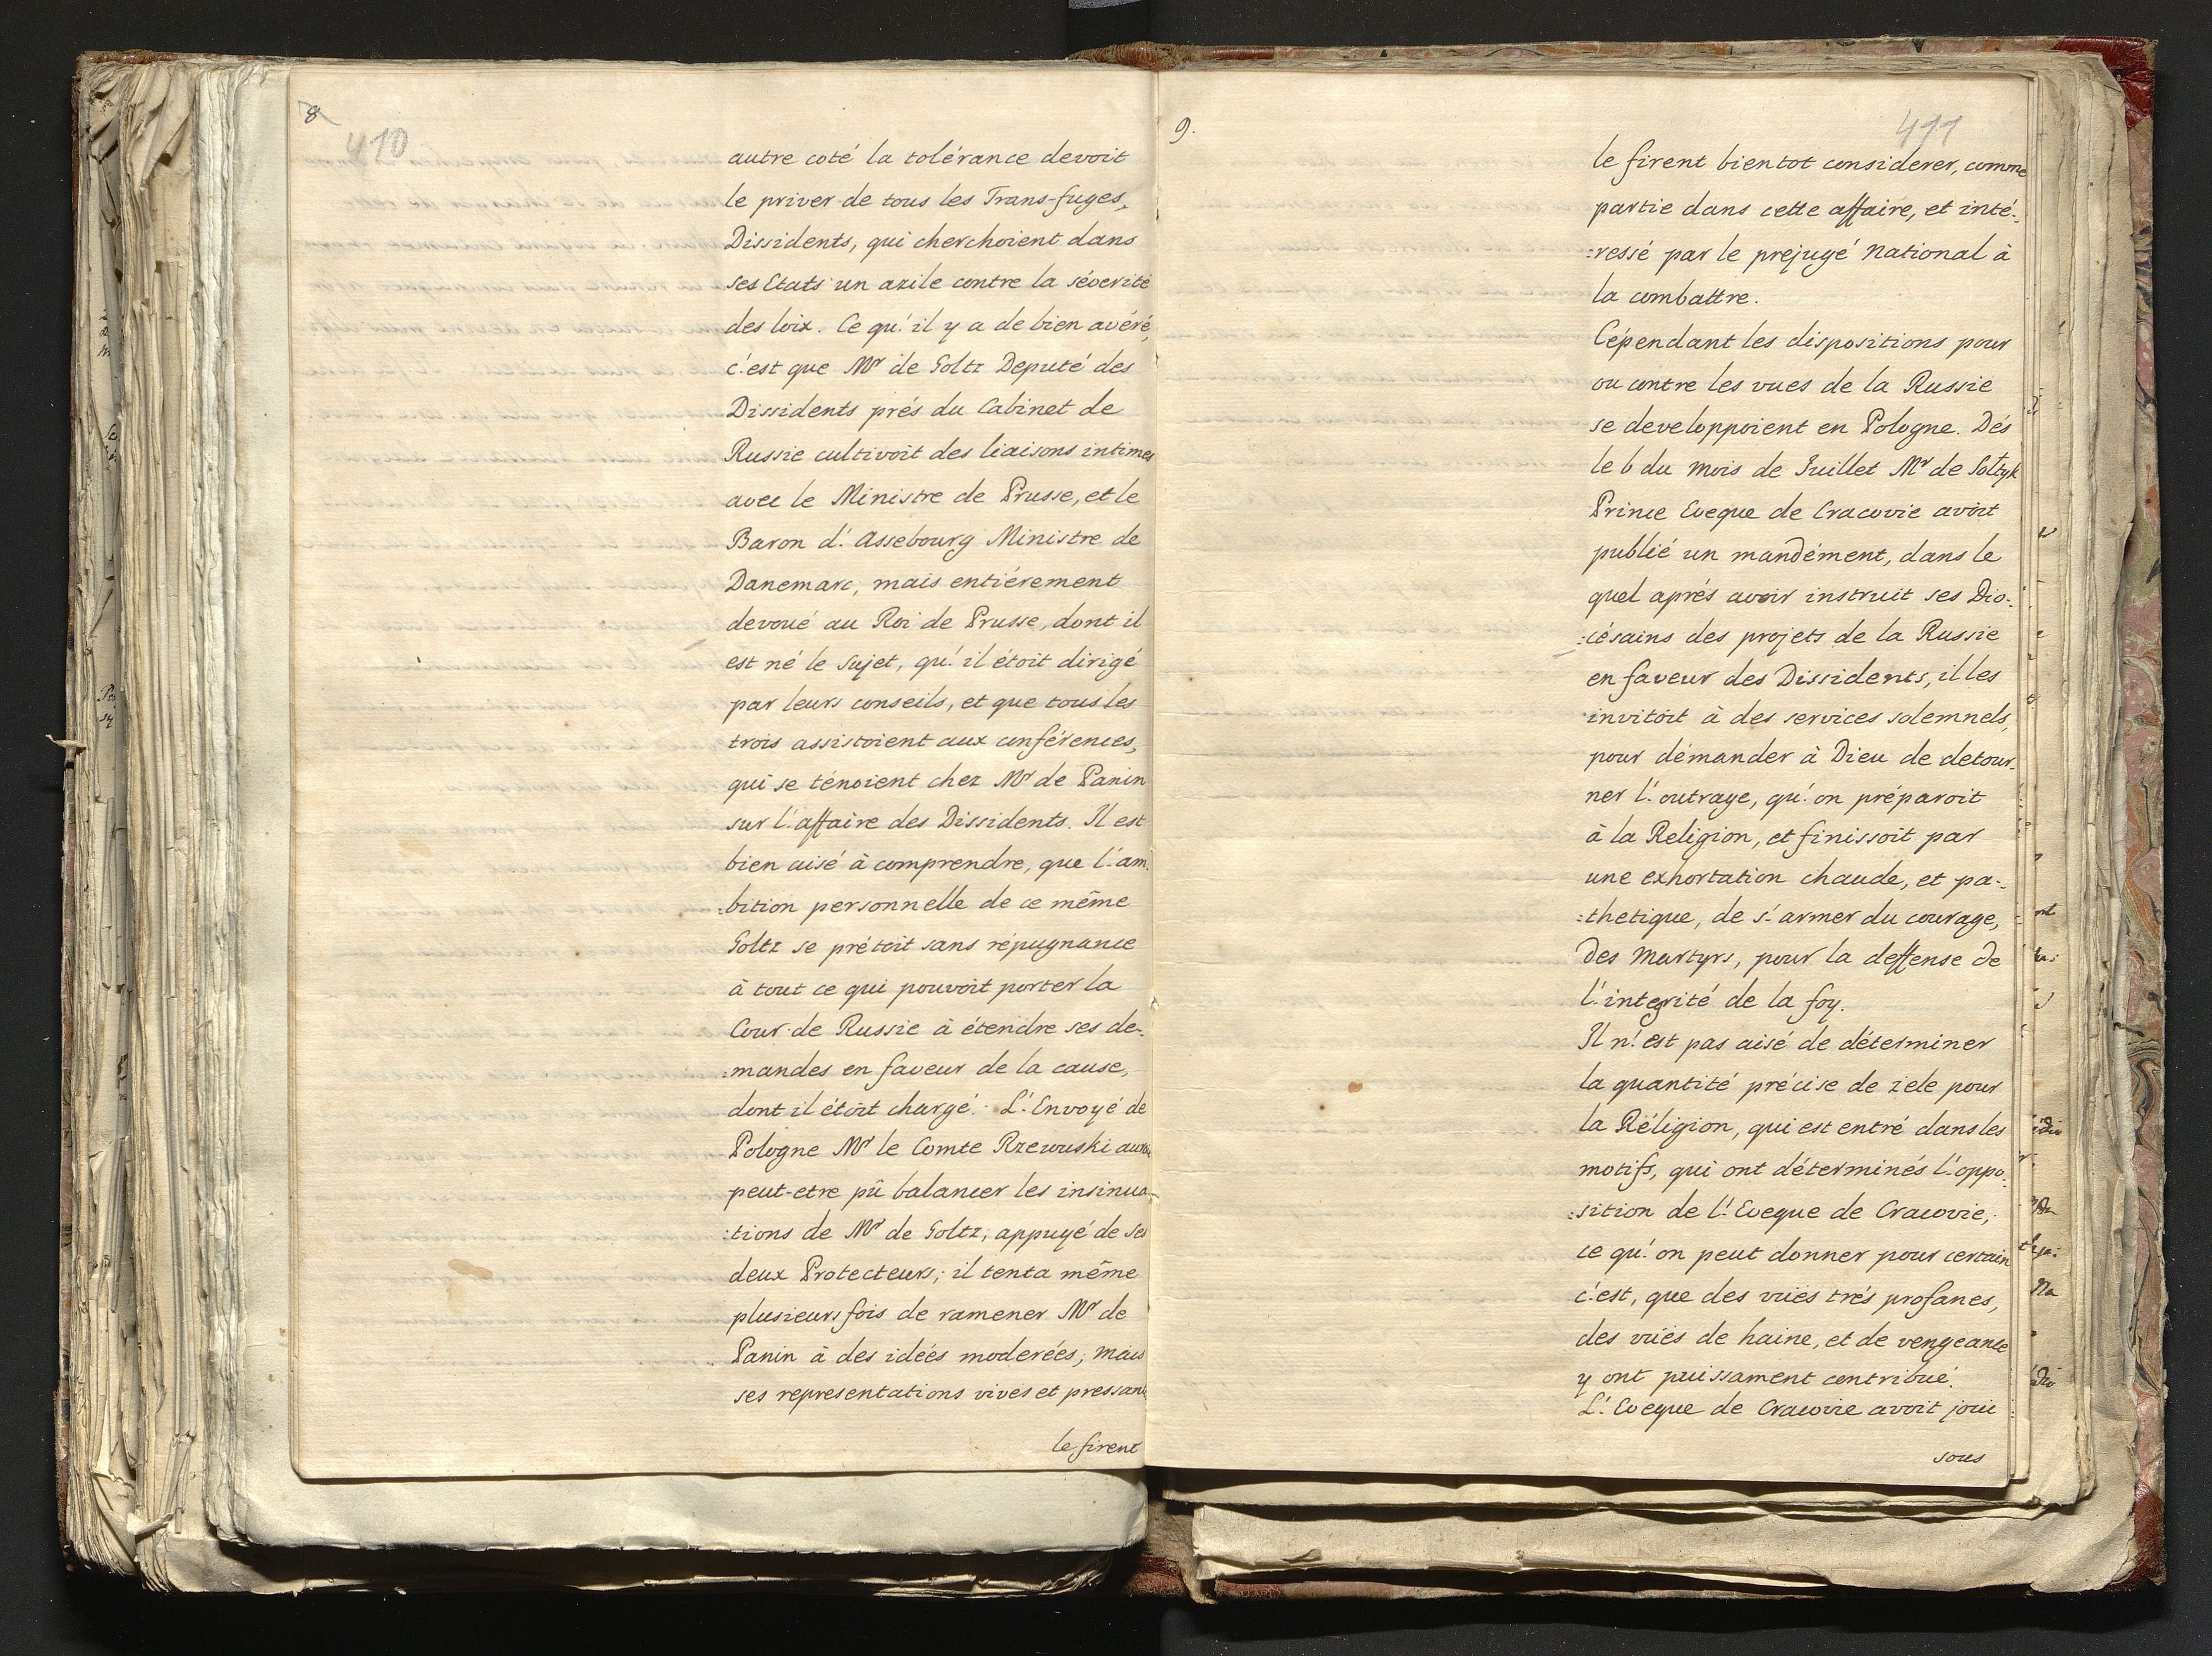 8
410
autre coté la tolérance devoit
le priver de tous les Trans-fuges,
Dissidents, qui cherchoient dans
ses Etats un azile contre la séverité
des loix. Ce qu'il y a de bien avéré,
c'est que Mr de Goltz Deputé des
Dissidents prés du Cabinet de
Russie cultivoit des liaisons intimes
avec le Ministre de Prusse, et le
Baron d'Assebourg Ministre de
Danemarc, mais entiérement
devoué au Roi de Prusse, dont il
est né le Sujet, qu'il étoit dirigé
par leurs conseils, et que tous les
trois assistoient aux conférences,
qui se ténoient chez Mr de Panin
sur l'affaire des Dissidents. Il est
bien aisé à comprendre, que l'am:
:bition personnelle de ce même
Goltz se prétoit sans répugnance
à tout ce qui pouvoit porter la
Cour de Russie à étendre ses de:
:mandes en faveur de la cause,
dont il étoit chargé. L'Envoyé de
Pologne Mr le Comte Rzewuski
peut-etre pû balancer les insinua
:tions de Mr de Goltz, appuyé de ses
deux Protecteurs; il tenta même
plusieurs fois de ramener Mr de
Panin à des idéés moderées; mais
ses representations vives et pressan
le firent
9.
411
le firent bientot considerer, comme
partie dans cette affaire, et inté:
:ressé par le prejugé National à
la combattre.
Cépendant les dispositions pour
ou contre les vues de la Russie
se developpoient en Pologne. Dés
le 6 du Mois de Juillet Mr de Sołtyk
Prince Eveque de Cracovie avoit
publié un mandément, dans le
quel aprés avoir instruit ses Dio:
:césains des projets de la Russie
en faveur des Dissidents, il les
invitoit à des services solemnels,
pour démander à Dieu de detour
ner l'outrage, qu'on préparoit
à la Religion, et finissoit par
une exhortation chaude, et pa:
:thetique, de s'armer du courage,
des Martyrs, pour la deffense de
l'integrité de la foy.
Il n'est pas aisé de déterminer
la quantité précise de zele pour
la Réligion, qui est entré dans les
motifs, qui ont déterminés l'oppo:
:sition de l'Eveque de Cracovie,
ce qu'on peut donner pour certain
c'est, que des vuës trés profanes,
des vuës de haine, et de vengeance
y ont puissament contribué.
L'Eveque de Cracovie avoit joui
sous